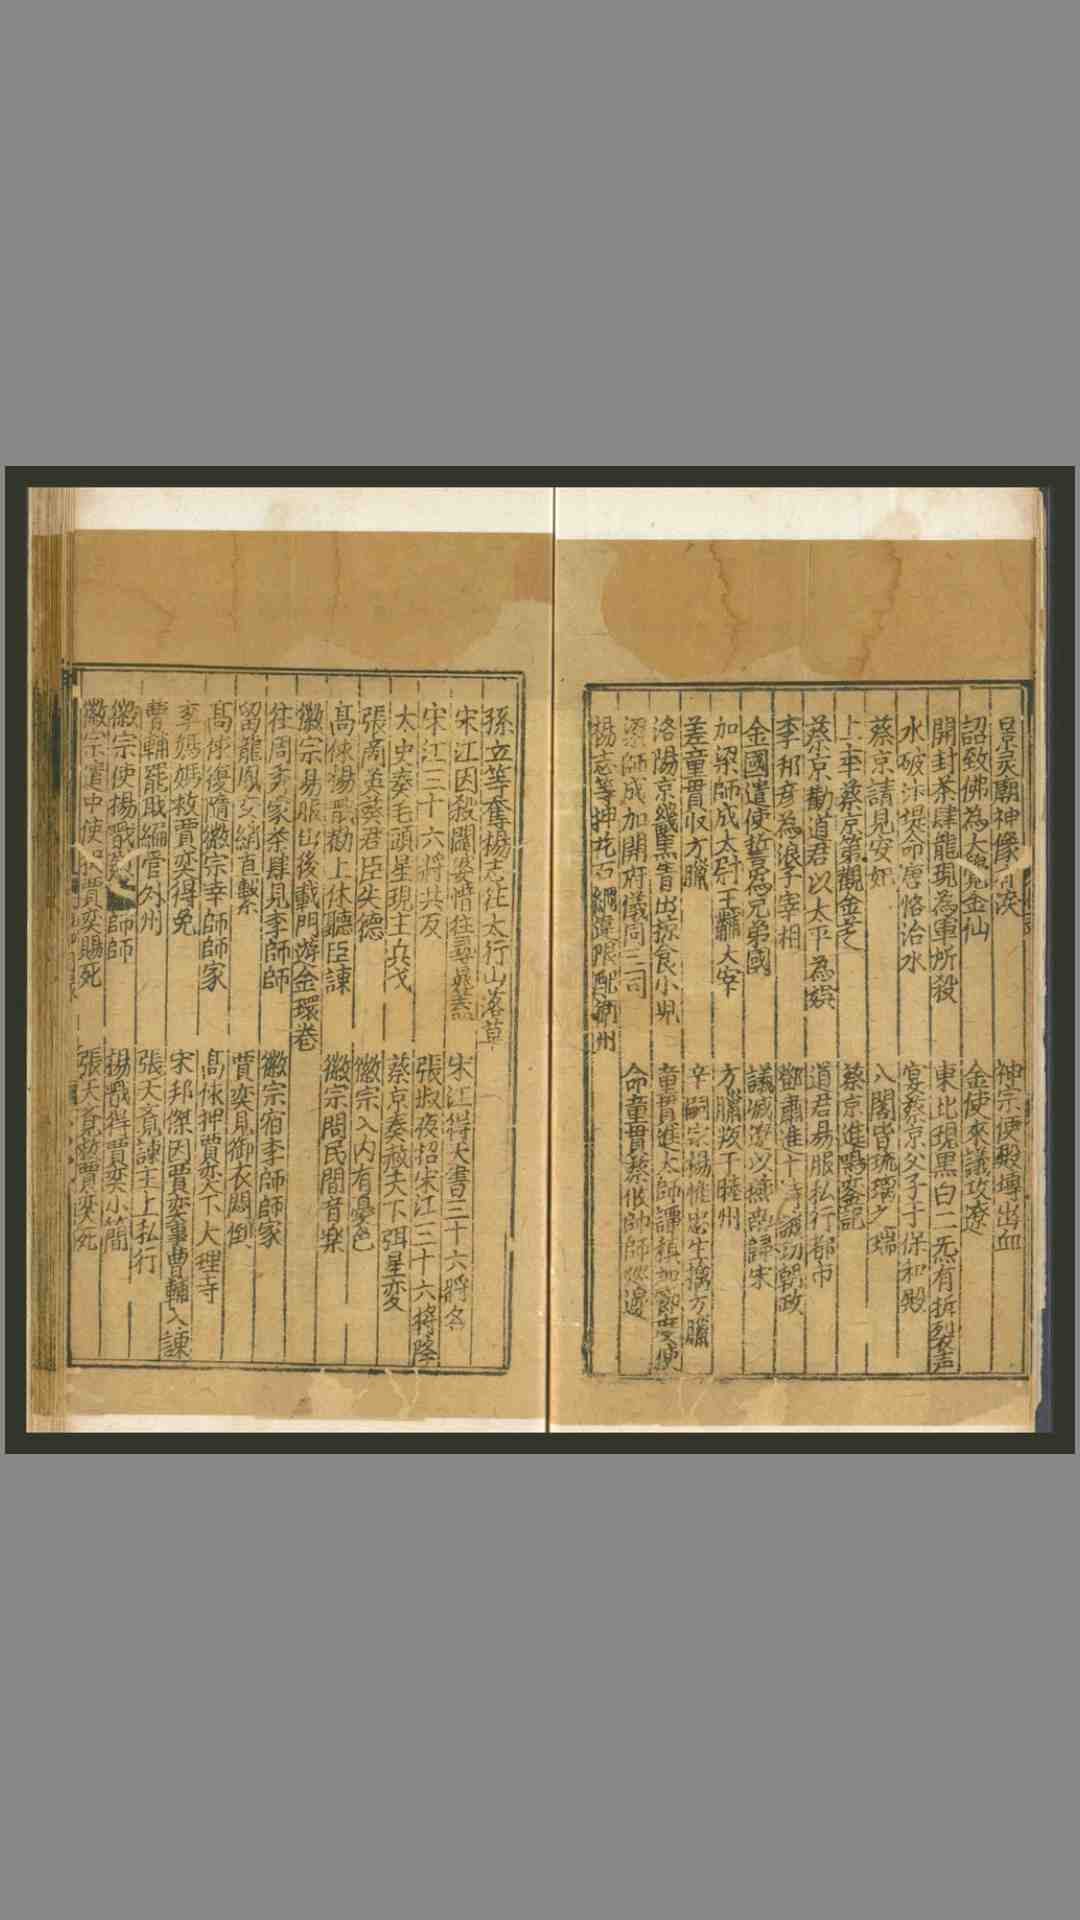 景灵廟神像 淚
神宗便殿塼出血
詔致佛為大覺金仙
金使來議攻遼
開封茶肆龍現為軍所殺
東北現黒白二炁有拆裂声
水破汴堤命唐恪治水
宴蔡京父子于保和殿
蔡京請見安妃
八閣皆琉璃之瑞
上幸蔡京第觀金芝
蔡京進鳴鑾記
蔡京勸道君以太平為娯
道君易服私行都市
李邦彦為浪子宰相
鄧肅進十詩諷切朝政
金國遣使誓為兄弟國
議減遼以燕 歸宋
加梁師成太尉王黼大宰
方臘叛于睦州
差童貫収方臘
辛嗣宗楊惟忠生擒方臘
洛陽京畿黒眚出掠食小児
童貫進太師譚稹加節度使
梁師成加開府儀同三司
命童貫蔡攸帥師廵邊
楊志等押花石綱違限配 州
孫立等奪楊志往太行山落草
宋江因殺閻婆惜往尋晁盖
宋江得天書三十六將名
宋江三十六將共反
張叔夜招宋江三十六將降
太史奏毛頭星現主兵戈
蔡京奏赦天下弭星変
張商英奏君臣失德
徽宗入内有憂色
髙俅楊戩勸上休聽臣諫
徽宗問民間音樂
徽宗易服出後載門遊金環巷
往周秀家茶肆見李師師
徽宗宿李師師家
留龍鳳交綃直繫
賈奕見御衣悶倒
髙俅復隨徽宗幸師師家
髙俅押賈奕下大理寺
李媽媽救賈奕得免
宋邦傑因賈奕事曹輔入諫
曹輔罷職編管 州
張天覔諫主上私行
徽宗使楊戩 師師
楊戩得賈奕小簡
徽宗遣中使 賈奕賜死
張天覔救賈奕死